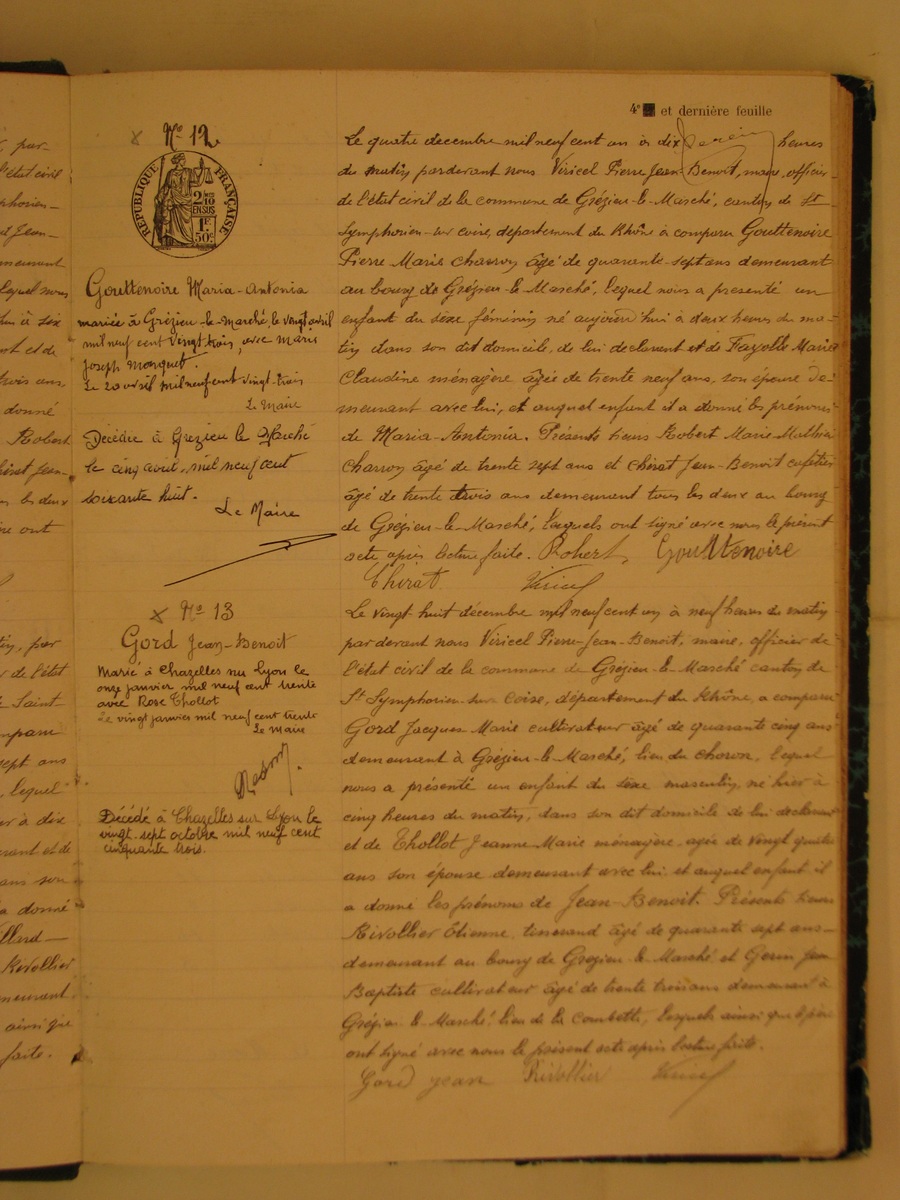 4e et dernière feuille
No 12
RÉPUBLIQUE FRANÇAISE
2/10
EN SUS
1F.
50c
Gouttenoire Maria-Antonia
mariée à Grézieu-le-Marché, le vingt avril
mil neuf cent vingt trois, avec Marie
Joseph
Le 20 avril mil neuf cent vingt-trois
Le Maire
Décédée à Grezieu le Marché
le cinq août, mil neuf cent
soixante huit.
Le Maire
Le quatre decembre mil neuf cent un à dix heures
du matin par devant nous Viricel Pierre Jean-Benoit, maire, officier
de l'état civil de la commune de Grézieu-le-Marché, canton de St
Symphorien-sur Coise, département du Rhône à comparu Gouttenoire
Pierre Marie charron âgé de quarante-sept ans demeurant
au bourg de Grézieu-le-Marché, lequel nous a presenté un
enfant du sexe féminin né aujourd'hui à deux heures du ma-
tin dans son dit domicile, de lui declarant et de Fayolle Marie
Claudine ménagère âgée de trente neuf ans, son épouse de-
meurant avec lui, et auquel enfant il a donné les prénoms
de Maria-Antonia. Présents sieurs Robert Marie Mathieu
charron âgé de trente sept ans et Chirat Jean-Benoit cafetier
âgé de trente trois ans demeurant tous les deux au bourg
de Grézieu-le-Marché, lesquels ont signé avec nous le présent
acte après lecture faite. Robert Gouttenoire
Chirat Viricel
No 13
Gord Jean-Benoit
Marié à Chazelles sur Lyon le
onze janvier mil neuf cent trente
avec Rose Thollot
Le vingt janvier mil neuf cent trente
Le Maire
Décédé à Chazelles sur Lyon le
vingt-sept octobre mil neuf cent
cinquante trois.
Le vingt huit décembre mil neuf cent un à neuf heures du matin
par devant nous Viricel Pierre-Jean-Benoit, maire, officier de
l'état civil de la commune de Grézieu-le-Marché canton de
St Symphorien-sur Coise, département du Rhône, a comparu
Gord Jacques Marie cultivateur âgé de quarante cinq ans
demeurant à Grézieu-le-Marché, lieu du choron, lequel
nous a présenté un enfant du sexe masculin, né hier à
cinq heures du matin, dans son dit domicile de lui declarant
et de Thollot Jeanne Marie ménagère, agée de vingt quatre
ans son épouse demeurant avec lui, et auquel enfant il
a donné les prénoms de Jean-Benoit. Présents sieurs
Rivollier Etienne, tisserand âgé de quarante sept ans
demeurant au bourg de Grezieu-le-Marché et Gerin Jean
Baptiste cultivateur âgé de trente trois ans demeurant à
Grézieu-le-Marché, lieu de la combette, lesquels ainsi que le père
ont signé avec nous le présent acte après lecture faite.
Gord jean Rivollier Viricel